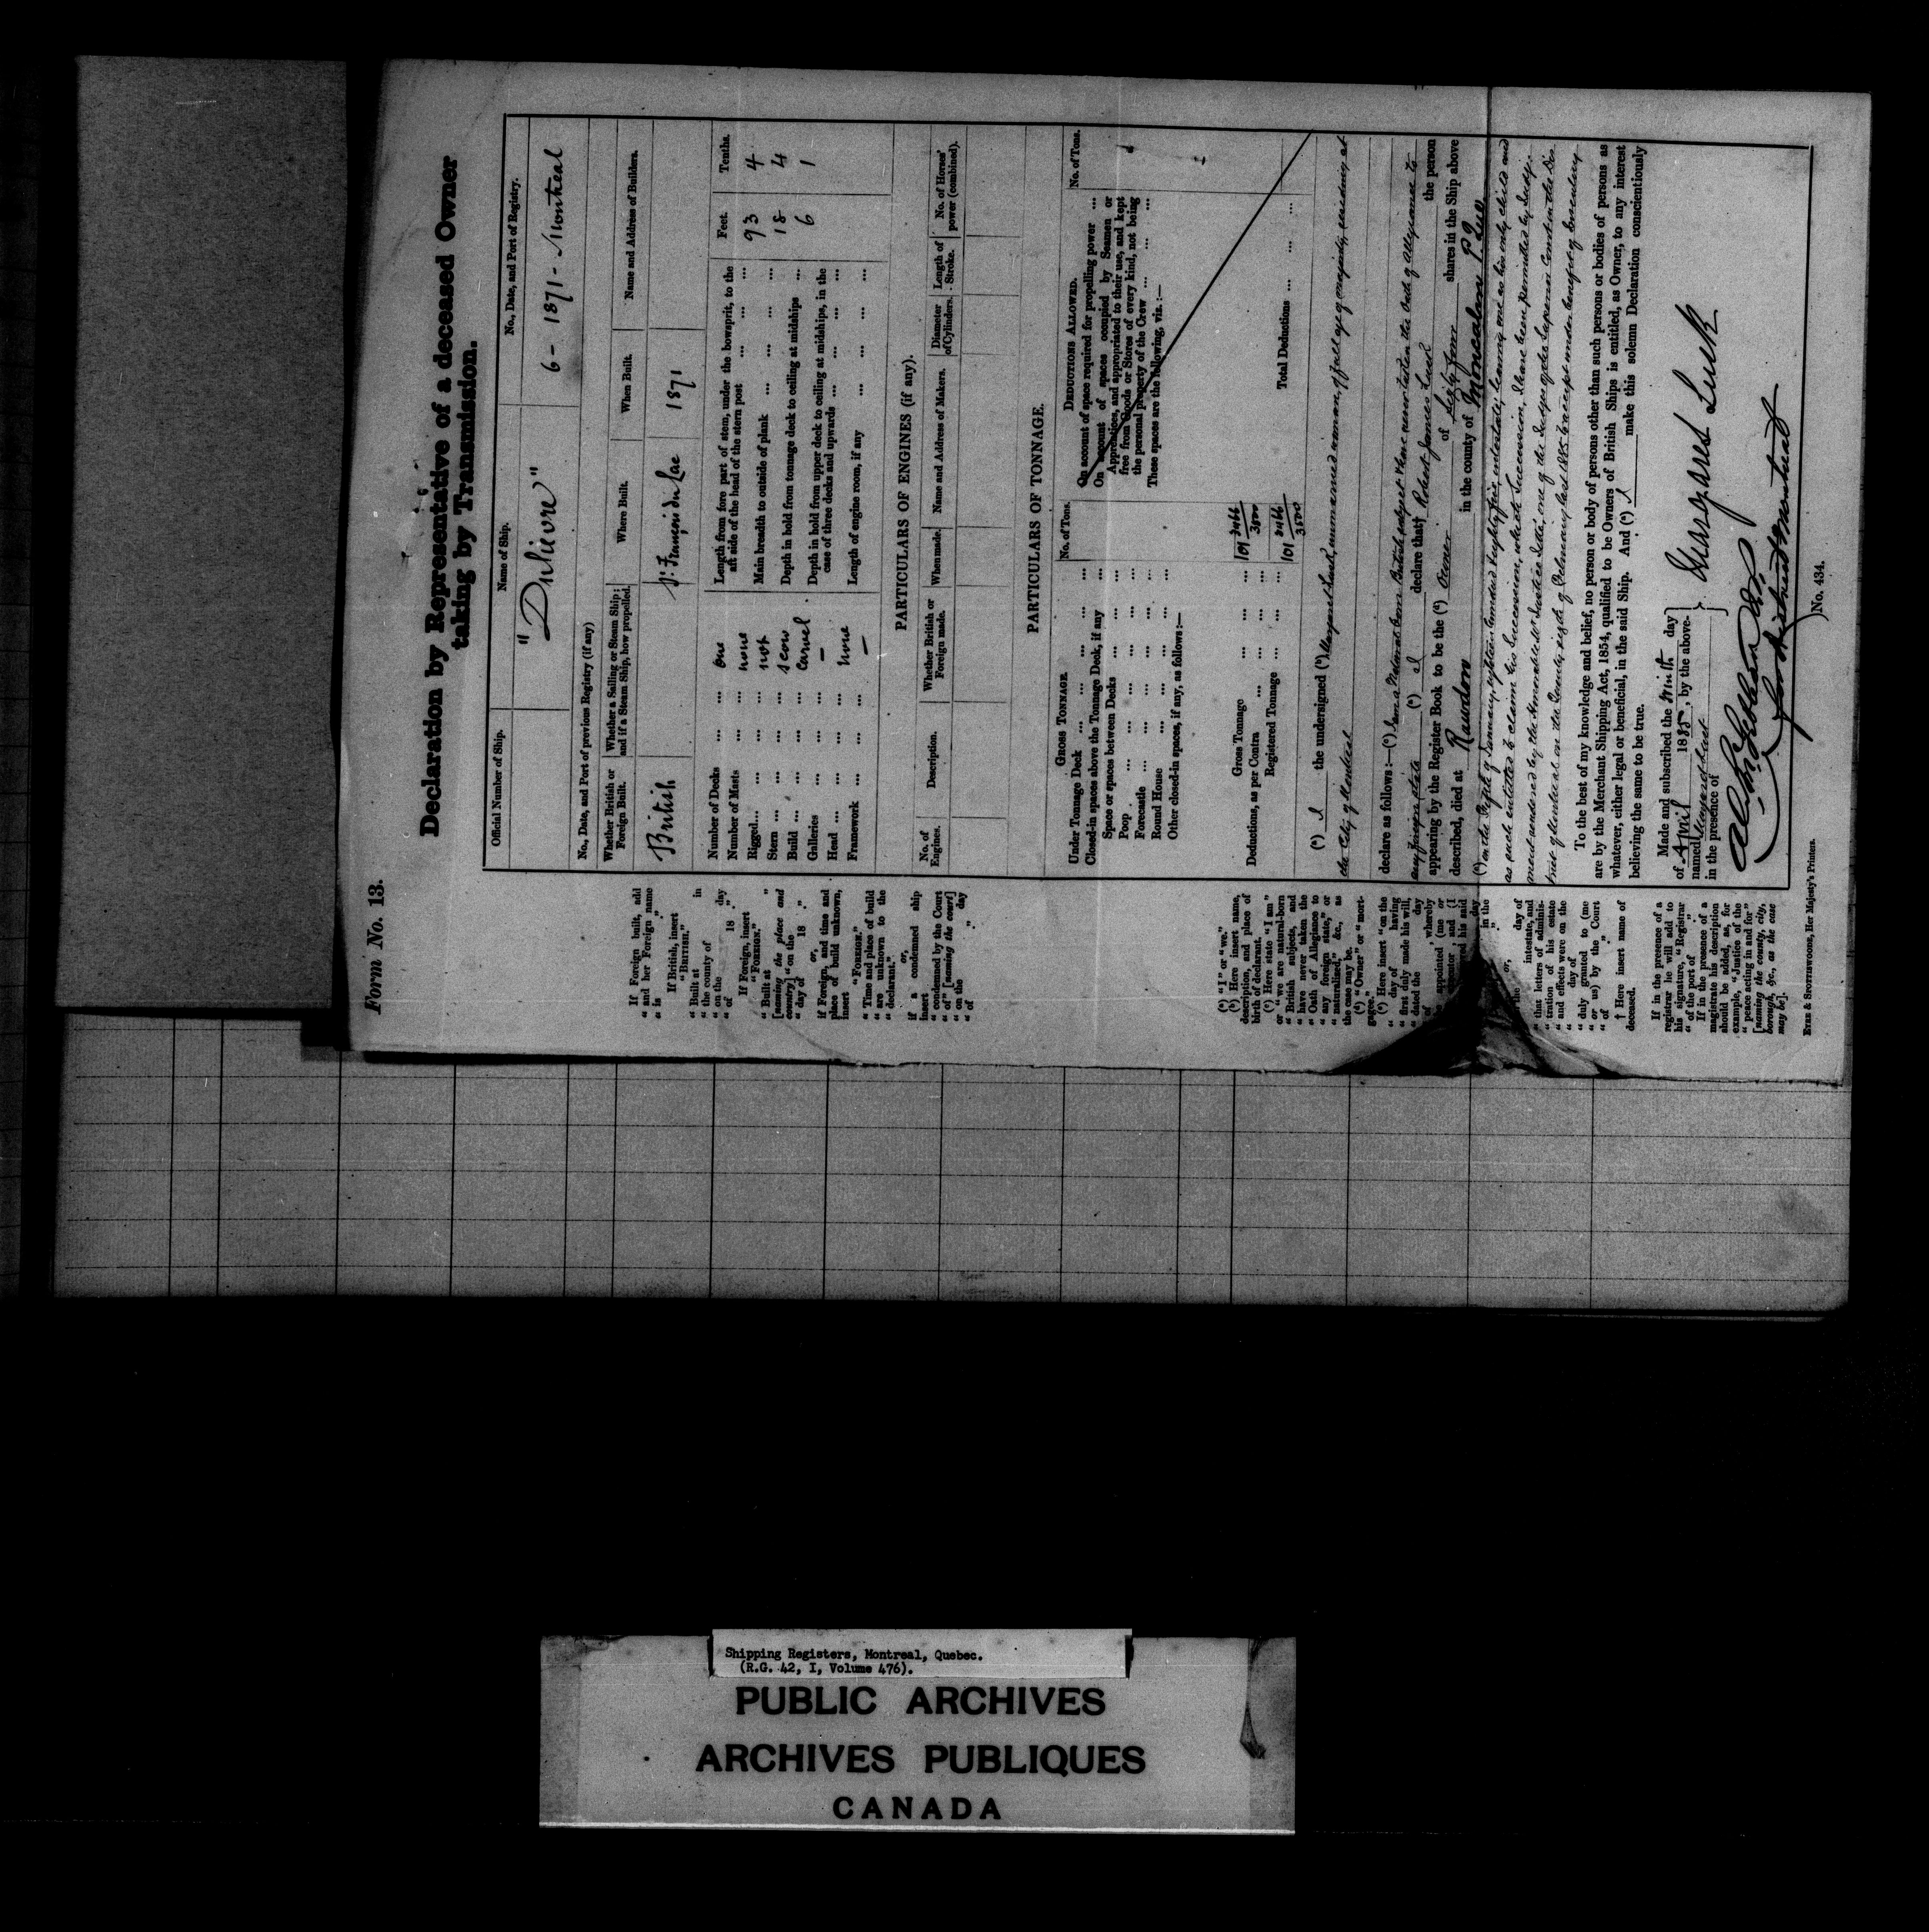 Form No. 13.
Declaration by Representative of a deceased Owner
taking by Transmission.
Official Number of Ship.
Name of Ship.
No., Date, and Port of Registry.
"Dulievre"
6 - 1871 - Montreal
No., Date, and Port of previous Registry (if any)
Whether British or Foreign Built.
Whether a Sailing or Steam Ship; and if a Steam Ship, how propelled.
Where Built.
When Built.
Name and Address of Builders.
British
St. François du Lac
1871
Feet.
Tenths.
Number of Decks ... ... one
Number of Masts ... ... none
Rigged... ... ... not
Stern ... ... ... scow
Build ... ... ... Carvel
Galleries ... ... —
Head ... ... ... none
Framework ... ... —
Length from fore part of stem, under the bowsprit, to the
aft side of the head of the stern post ... ... ... 93 4
Main breadth to outside of plank ... ... ... 18 4
Depth in hold from tonnage deck to ceiling at midships ... 6 1
Depth in hold from upper deck to ceiling at midships, in the
case of three decks and upwards ... ... ... ...
Length of engine room, if any ... ... ... ...
PARTICULARS OF ENGINES (if any).
No. of Engines.
Description.
Whether British or Foreign made.
When made.
Name and Address of Makers.
Diameter of Cylinders.
Length of Stroke.
No. of Horses' power (combined).
PARTICULARS OF TONNAGE.
GROSS TONNAGE.
No. of Tons.
Under Tonnage Deck ... ... ... ...
Closed-in spaces above the Tonnage Deck, if any
Space or spaces between Decks ... ... ...
Poop ... ... ... ... ...
Forecastle ... ... ... ... ...
Round House ... ... ... ...
Other closed-in spaces, if any, as follows:—
Gross Tonnage ... ... ... 101 3466/3500
Deductions, as per Contra ... ... ...
Registered Tonnage ... ... ... 101 3466/3500
DEDUCTIONS ALLOWED.
No. of Tons.
On account of space required for propelling power ...
On account of spaces occupied by Seamen or
Apprentices, and appropriated to their use, and kept
free from Goods or Stores of every kind, not being
the personal property of the Crew ... ... ...
These spaces are the following, viz.:—
Total Deductions ... ... ...
(a) I the undersigned (b) Margaret Lusk, unmarried woman, of full age of majority, residing at
the City of Montreal
declare as follows:—(c) I am a Natural born British subject & have never taken the Oath of Allegiance to
any foreign state (a) I declare that† Robert James Lusk the person
appearing by the Register Book to be the (d) Owner of Sixty four shares in the Ship above
described, died at Rawdon in the county of Montcalm P Que
(e) on the Fifth of January, eighteen hundred & eighty five, intestate, leaving me as his only child and
as such entitled to claim his Succession, which Succession, I have been permitted by Judg-
ment rendered by the Honorable Mr Justice one of the Judges of the Superior Court in the Dis-
trict of Montreal on the Twenty eighth of February last 1885 to accept under benefit of Inventory
To the best of my knowledge and belief, no person or body of persons other than such persons or bodies of persons as
are by the Merchant Shipping Act, 1854, qualified to be Owners of British Ships is entitled, as Owner, to any interest
whatever, either legal or beneficial, in the said Ship. And (a) I make this solemn Declaration conscientiously
believing the same to be true.
Made and subscribed the Ninth day
of April 1885, by the above-
named Margaret Lusk
in the presence of
Margaret Lusk
for district Montreal
No. 434.
"If Foreign built, add
"and her Foreign name
"is ."
If British, insert
"BRITISH."
"Built at in
"the county of
"on the day
"of 18 ."
If Foreign, insert
"FOREIGN."
"Built at "
[naming the place and
country] "on the
"day of 18 ."
or,
if Foreign, and time and
place of build unknown,
insert
"FOREIGN."
"Time and place of build
"are unknown to the
"declarant."
or,
if a condemned ship
insert
"condemned by the Court
"of" [naming the court]
"on the day
"of ."
(a) "I" or "we."
(b) Here insert name,
description, and place of
birth of declarant.
(c) Here state "I am"
or "we are natural-born
"British subjects, and
"have never taken the
"Oath of Allegiance to
"any foreign state," or
"naturalized," &c., as
the case may be.
(d) "Owner" or "mort-
gagee."
(e) Here insert "on the
" day of having
"first duly made his will,
"dated the day
"of , whereby
appointed (me or
executor , and (I
his said
day
" in the
or,
the day of
intestate, and
"that letters of adminis-
"tration of his estate
"and effects were on the
" day of
"duly granted to (me
"or us) by the Court
"of ."
† Here insert name of
deceased.
If in the presence of a
registrar he will add to
his signature, "Registrar
"of the port of ."
If in the presence of a
magistrate his description
should be added, as, for
example, "Justice of the
"peace acting in and for"
[naming the county, city,
borough, &c., as the case
may be].
EYRE & SPOTTISWOODE, Her Majesty's Printers.
Shipping Registers, Montreal, Quebec.
(R.G. 42, I, Volume 476).
PUBLIC ARCHIVES
ARCHIVES PUBLIQUES
CANADA